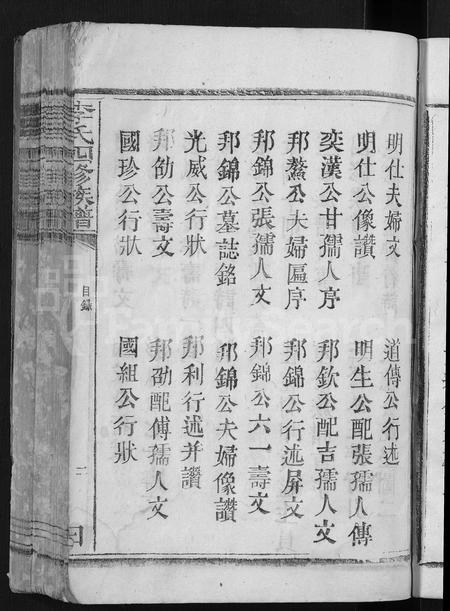 明仕夫婦文
道傳公行述
明仕公像讚
明生公配張孺人傳
奕漢公甘孺人序
邦欽公配吉孺人文
邦鰲公夫婦匾序
邦錦公行述屏文
邦錦公張孺人文
邦錦公六一壽文
邦錦公墓誌銘
邦錦公夫婦像讚
光威公行狀
邦利行述并讚
邦劭公壽文
邦劭配傅孺人文
國珍公行狀
國組公行狀
李氏四修族譜
目錄
二
FamilySearch